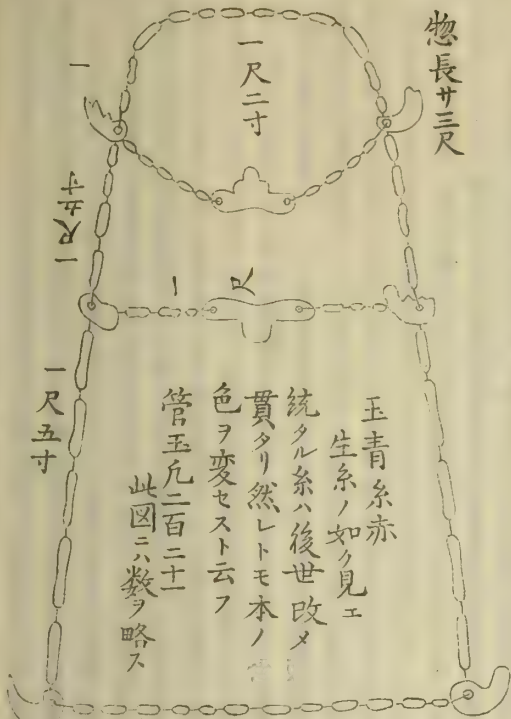 惣長サ三尺
一尺二寸
一
一尺五寸
一尺
一尺五寸
玉青糸赤
生糸ノ如ク見エ
統タル糸ハ後世改メ
貫タリ然レトモ本ノ
色ヲ変セスト云フ
管玉凡二百二十一
此図ニハ数ヲ略ス